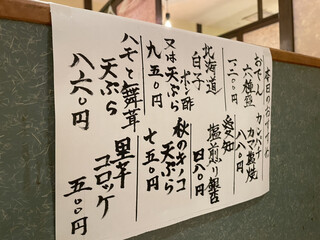 本日のおすすめ
おでん
六種盛
一二〇〇円
カンパチ
カマ塩焼
八八〇円
北海道
白子
ポン酢
又は天ぷら
九五〇円
愛知
塩煎り銀杏
四八〇円
ハモと舞茸
天ぷら
八六〇円
秋のキノコ
天ぷら
七五〇円
里芋
コロッケ
五〇〇円